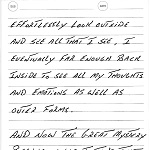 EFFORTLESSLY LOOK OUTSIDE
AND SEE ALL THAT I SEE, I
EVENTUALLY FAR ENOUGH BACK
INSIDE TO SEE ALL MY THOUGHTS
AND EMOTIONS AS WELL AS
OUTER FORMS.
AND NOW THE GREAT MYSTERY